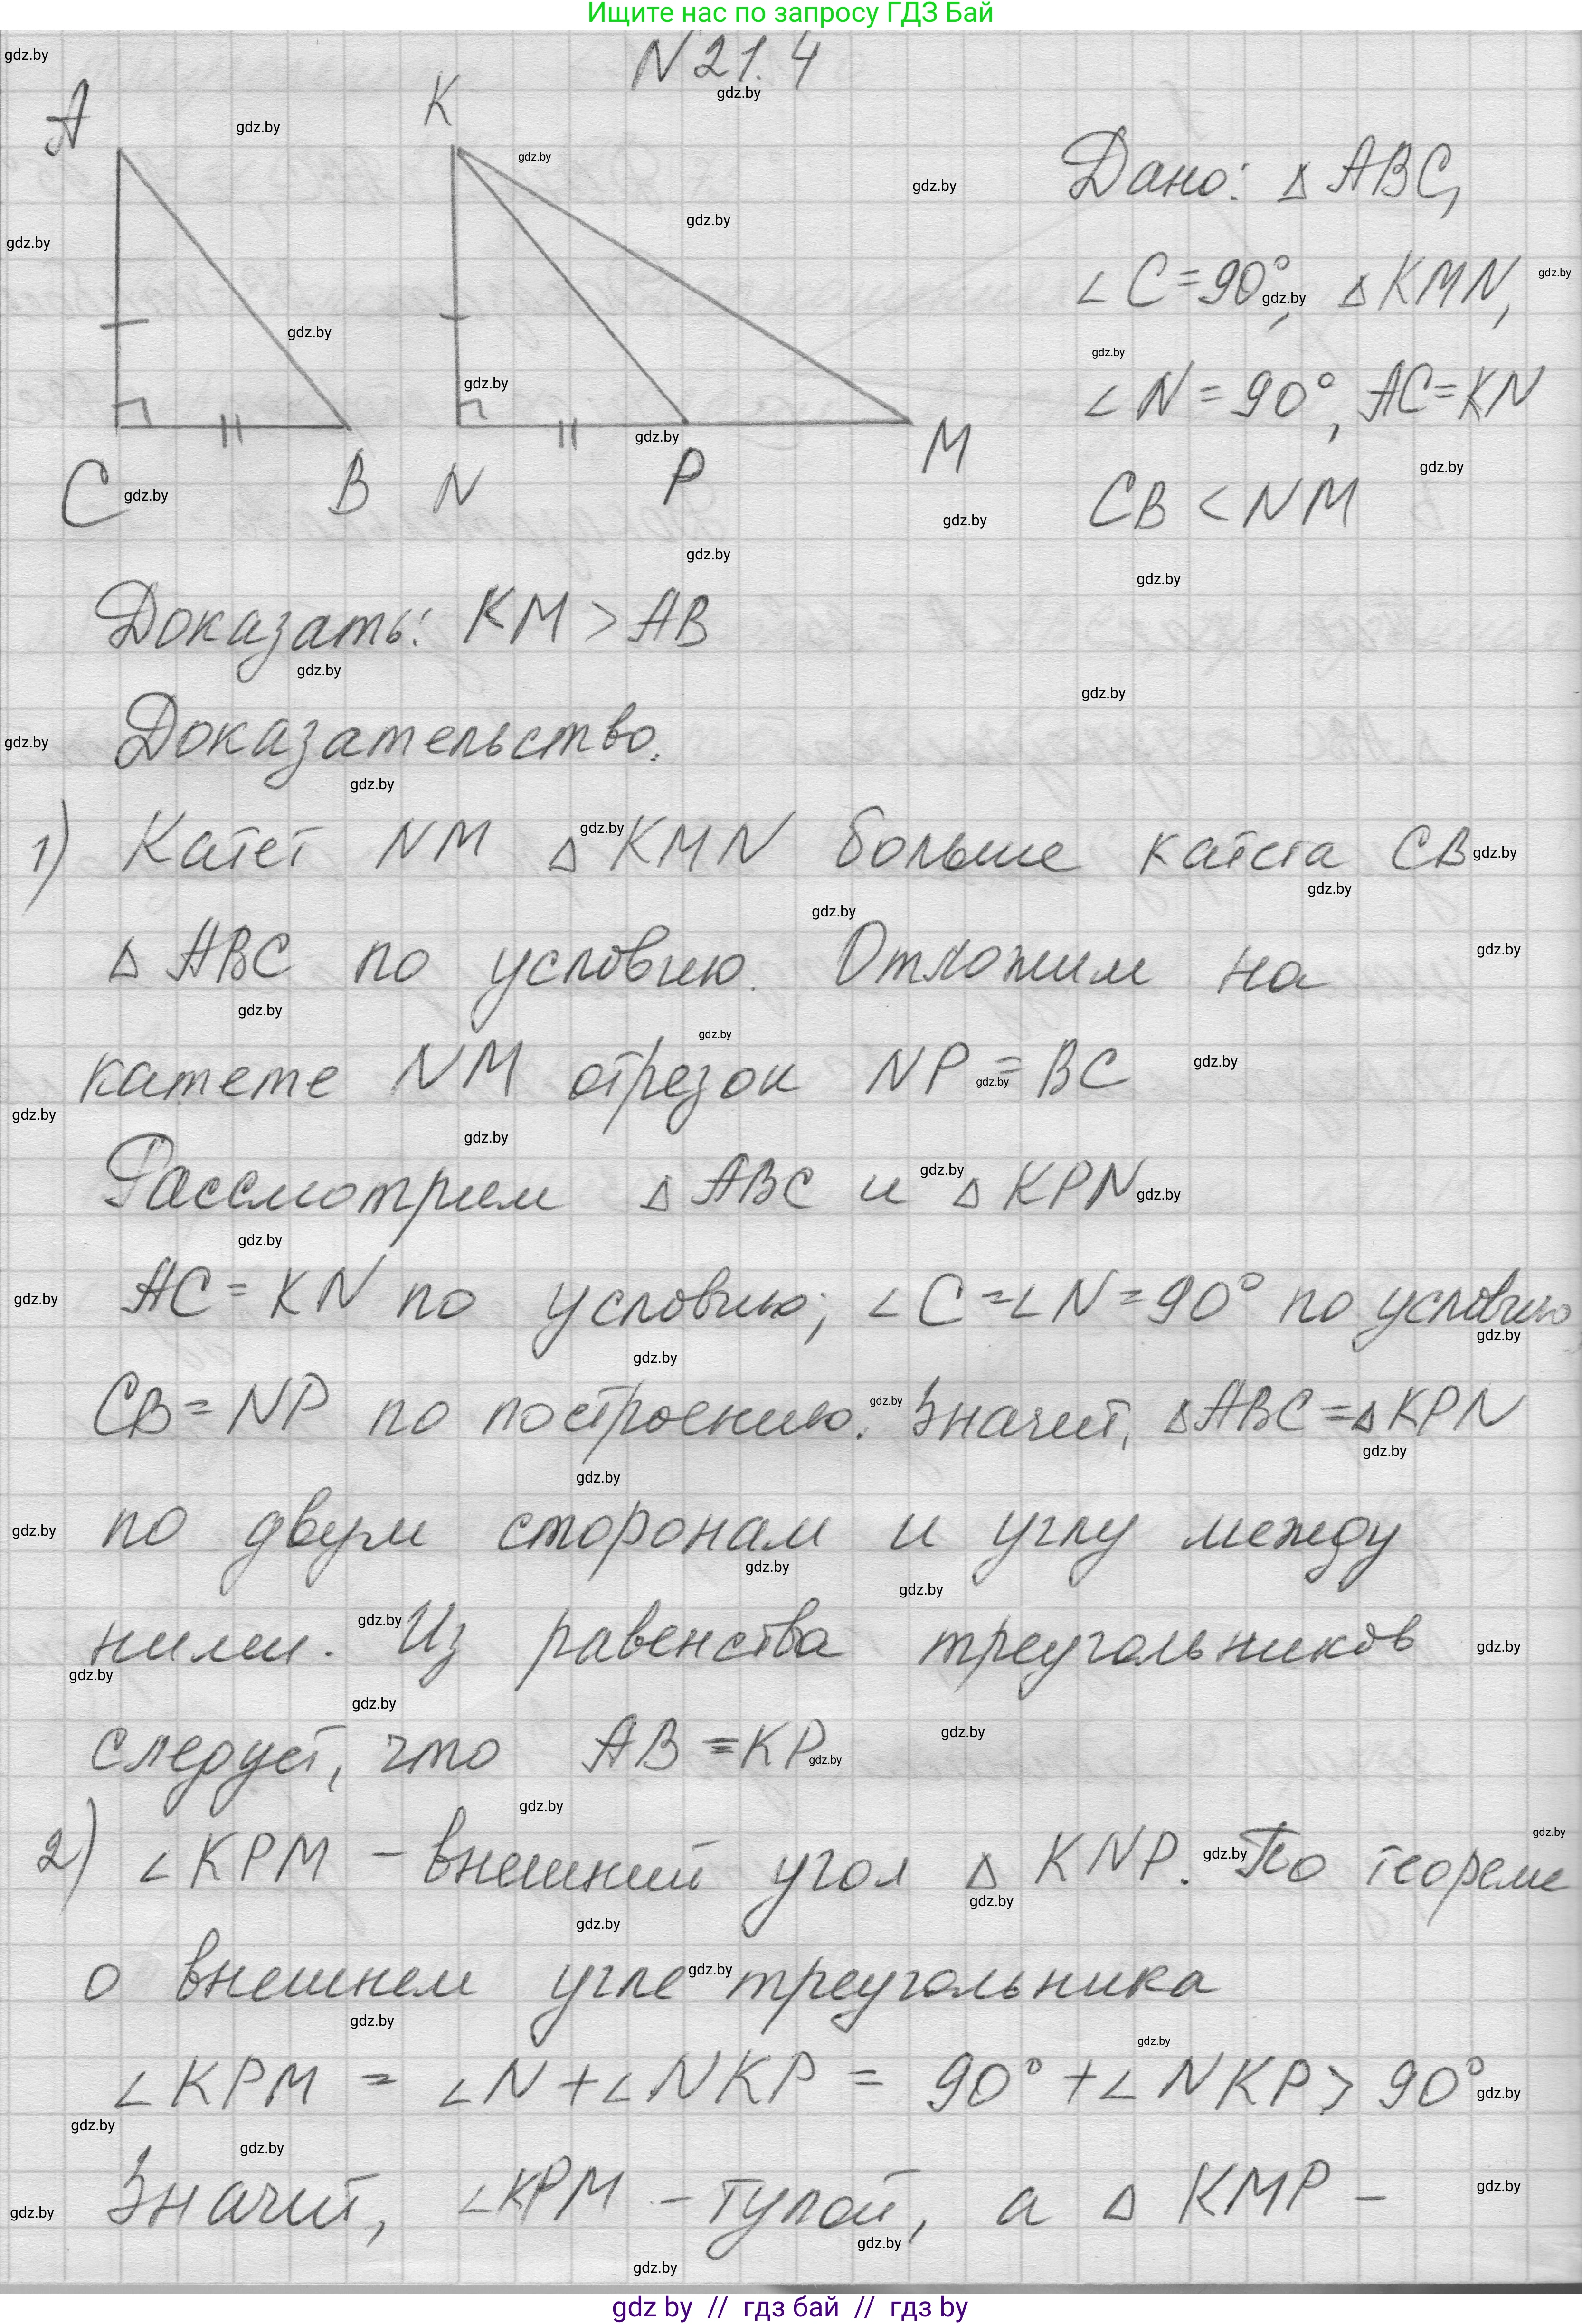 Ищите нас по запросу ГДЗ Бай
N 21. 4
A K
Дано: △ ABC,
∠ C = 90°, △ KMN,
∠ N = 90°, AC = KN
C B N P M
CB < NM
Доказать: KM > AB
Доказательство.
1) Катет NM △ KMN больше катета CB
△ ABC по условию. Отложим на
катете NM отрезок NP = BC
Рассмотрим △ ABC и △ KPN
AC = KN по условию; ∠ C = ∠ N = 90° по условию,
CB = NP по построению. Значит, △ ABC = △ KPN
по двум сторонам и углу между
ними. Из равенства треугольников
следует, что AB = KP
2) ∠ KPM – внешний угол △ KNP. По теореме
о внешнем угле треугольника
∠ KPM = ∠ N + ∠ NKP = 90° + ∠ NKP > 90°
Значит, ∠ KPM – тупой, а △ KMP –
gdz by // гдз бай // гдз by